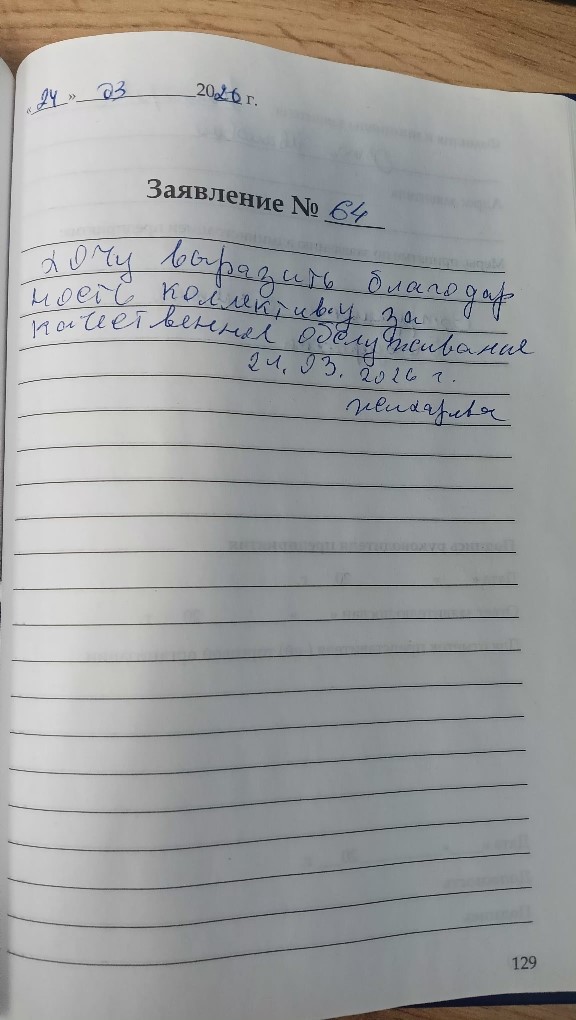 «24» 03 2026 г.
Заявление № 64
хочу выразить благодар
ность коллективу за
качественное обслуживание
21.03.2026 г.
129